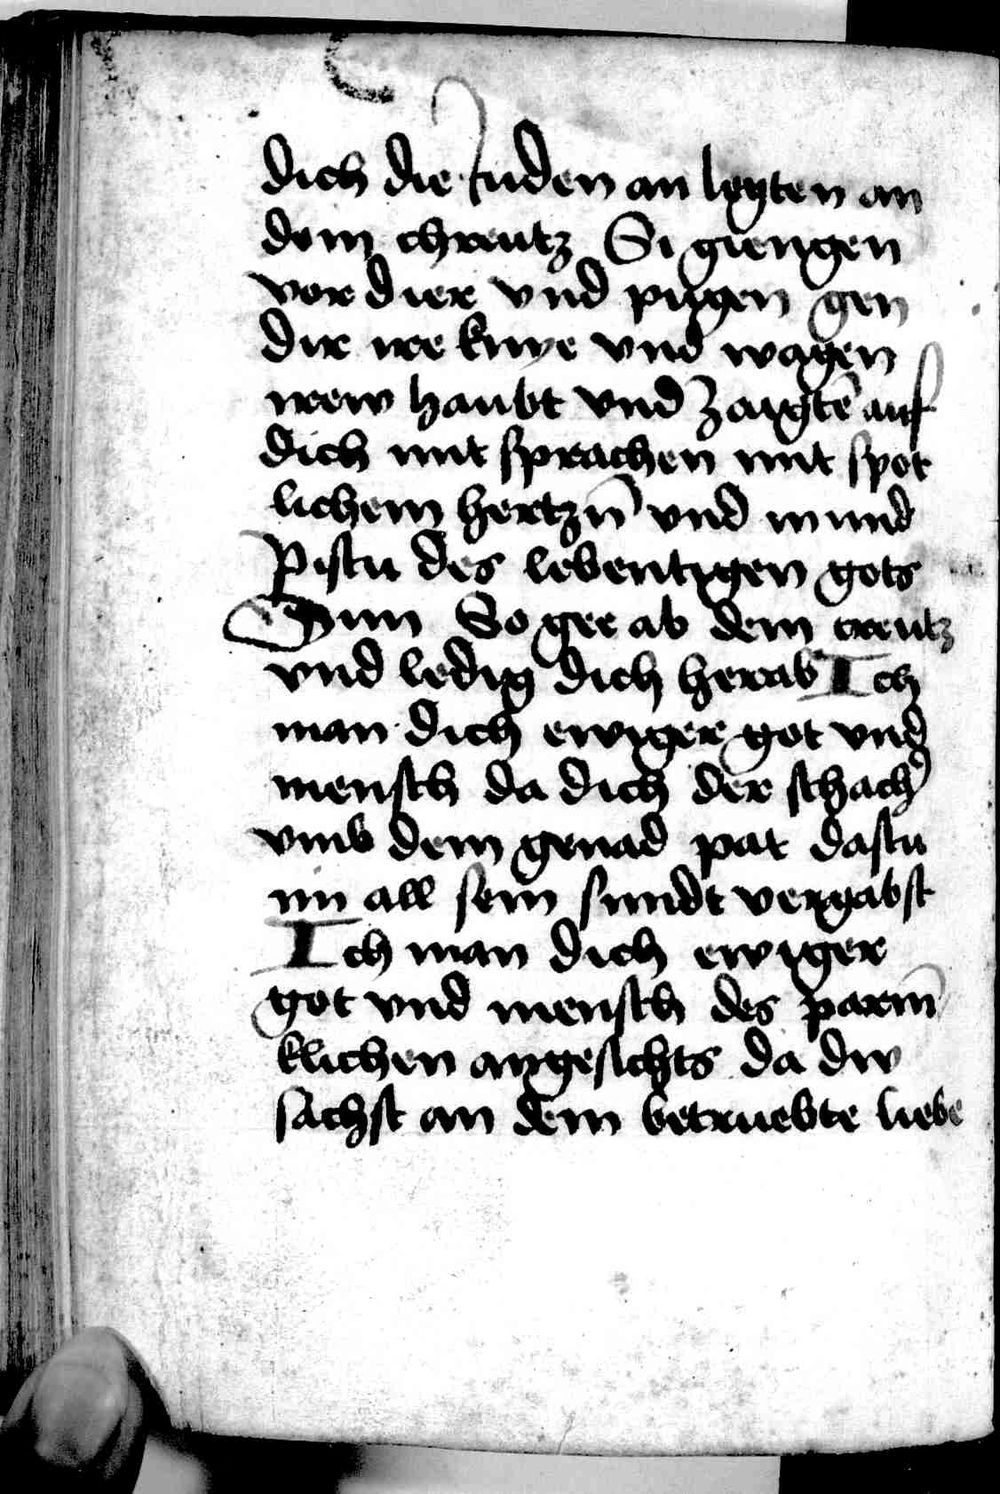 dich die Juden an legten an
dem chreutz Si giengen
vor dier vnd pugen gen
dir ire knye vnd wagen
irew haubt vnd zaigtē auf
dich mit sprachen mit spot
lichem hertzn̄ vnd mund
Pistu des lebentigen gots
Sun So gee ab dem creutz
vnd ledig dich herab Ich
man dich ewiger got vnd
mensch da dich der schach᾽
vmb dem genad pat dastu
im all sein sundt vergabst
Ich man dich ewiger
got vnd mensch des parm̄
klichen angesichts da dw
sachst an dein betruebte liebe